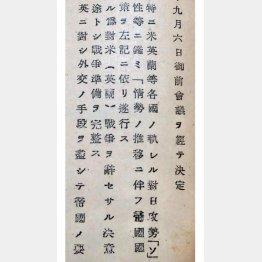 九月六日御前會議ヲ經テ決定
特ニ米英蘭等各國ノ執レル對日攻勢「ソ
性等ニ鑑ミ「情勢ノ推移ニ伴フ帝國國
策ヲ左記ニ依リ遂行ス
ル爲對米（英蘭）戰爭ヲ辭セサル決意
途トシ戰爭準備ヲ完整ス
英ニ對シ外交ノ手段ヲ盡シテ帝國ノ要